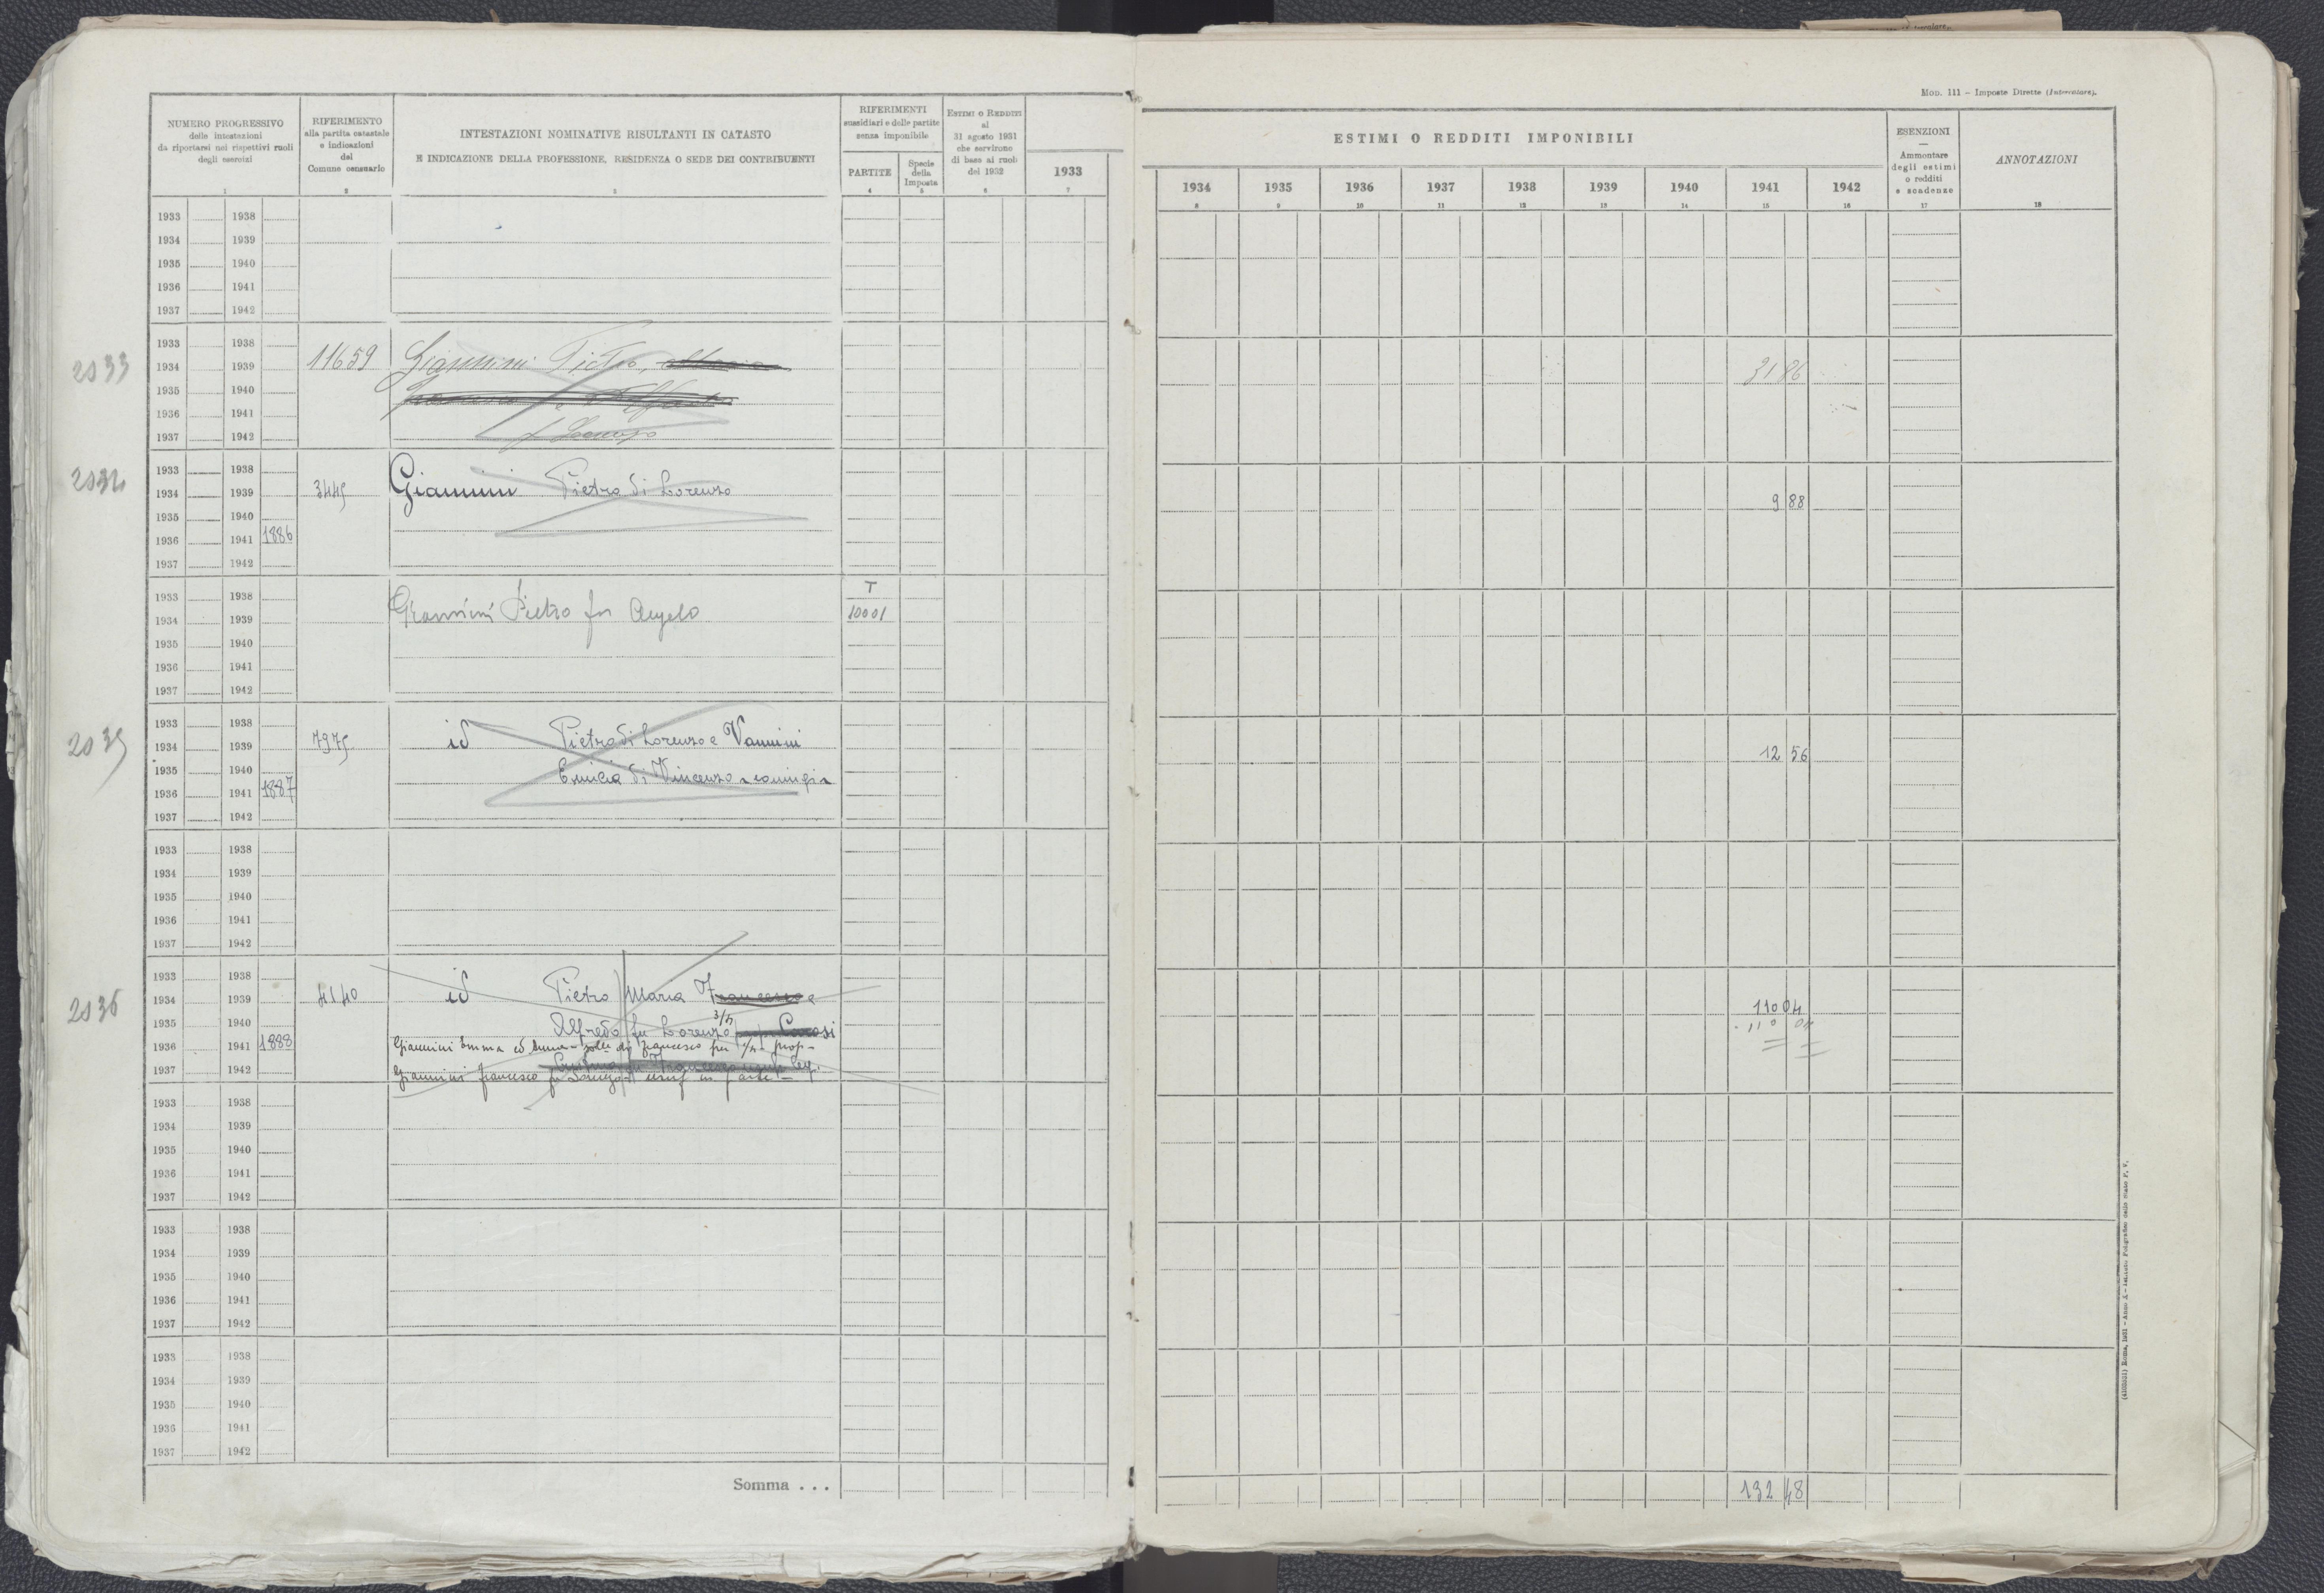 NUMERO PROGRESSIVO
delle intestazioni
da riportarsi nei rispettivi ruoli
degli esercizi
1
RIFERIMENTO
alla partita catastale
e indicazioni
del
Comune censuario
2
INTESTAZIONI NOMINATIVE RISULTANTI IN CATASTO
E INDICAZIONE DELLA PROFESSIONE, RESIDENZA O SEDE DEI CONTRIBUENTI
3
RIFERIMENTI
sussidiari e delle partite
senza imponibile
PARTITE
4
Specie
della
Imposta
5
ESTIMI O REDDITI
al
31 agosto 1931
che servirono
di base ai ruoli
del 1932
6
1933
7
1933 1938
1934 1939
1935 1940
1936 1941
1937 1942
1933 1938
2033 1934 1939 11659 Giannini Pietro,
1935 1940
1936 1941
1937 1942 f Lorenzo
1933 1938
2034 1934 1939 3445 Giannini Pietro di Lorenzo
1935 1940
1936 1941 1886
1937 1942
1933 1938 T
1934 1939 Giannini Pietro fu Angelo 10001
1935 1940
1936 1941
1937 1942
1933 1938
2035 1934 1939 7975 id Pietro di Lorenzo e Vannini
1935 1940 Emilia di Vincenzo coniugi
1936 1941 1887
1937 1942
1933 1938
1934 1939
1935 1940
1936 1941
1937 1942
1933 1938
2036 1934 1939 4140 id Pietro Maria Francesco e
1935 1940 Alfredo fu Lorenzo Carosi
1936 1941 1888 Giannini Emma ed Anna di Francesco per prop-
1937 1942 Giannini Francesco fu Lorenzo usuf in parte-
1933 1938
1934 1939
1935 1940
1936 1941
1937 1942
1933 1938
1934 1939
1935 1940
1936 1941
1937 1942
1933 1938
1934 1939
1935 1940
1936 1941
1937 1942
Somma . . .
MOD. 111 – Imposte Dirette (Intercolare).
ESTIMI O REDDITI IMPONIBILI
1934 1935 1936 1937 1938 1939 1940 1941 1942
8 9 10 11 12 13 14 15 16
ESENZIONI
—
Ammontare
degli estimi
o redditi
e scadenze
17
ANNOTAZIONI
18
31 86
9 88
12 56
110 04
110 04
132 48